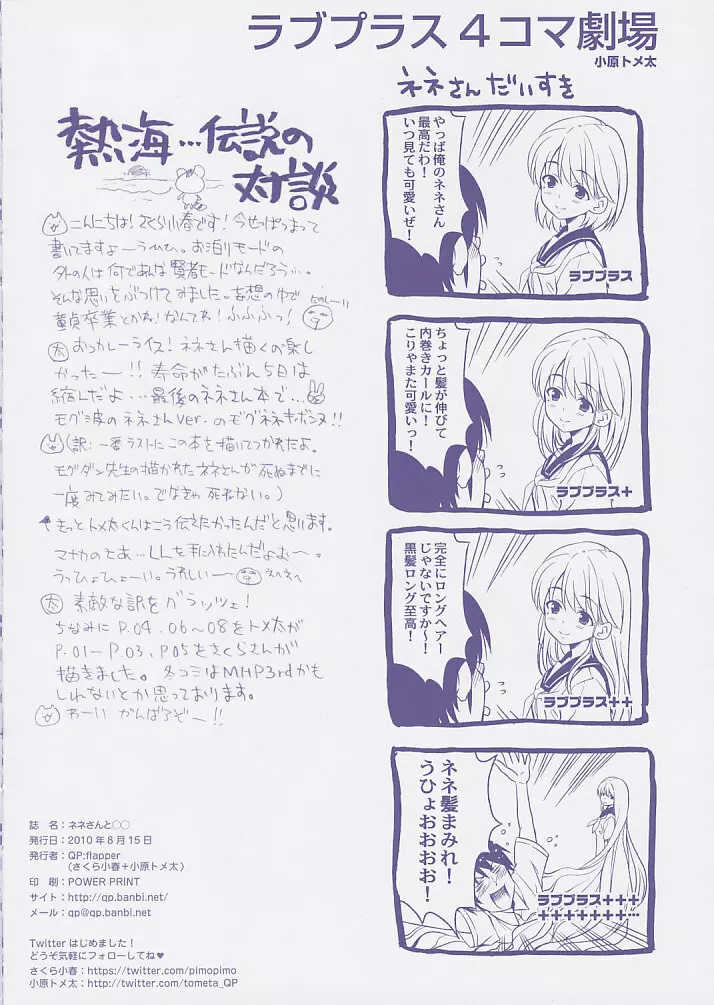 ラブプラス４コマ劇場
小原トメ太
ネネさんだいすき
やっぱ俺のネネさん
最高だわ！
いつ見ても可愛いぜ！
ラブプラス
ちょっと髪が伸びて
内巻きカールに！
こりゃまた可愛いっ！
ラブプラス+
完全にロングヘアー
じゃないですか～！
黒髪ロング至高！
ラブプラス++
ネネ髪まみれ！
うひょおおおおお！
ラブプラス+++
+++++++…
熱海…伝説の
対談
こんにちは！さくら小春です！今せっぱつまって
書いてますよーうひひ。お泊りモードの
外の人は何であんな賢者モードなんだろう…。
そんな思いをぶつけてみました。妄想の中で
童貞卒業とかね！なんてね！ふふふっ！
太 おつカレーライス！ネネさん描くの楽し
かったー！！寿命がたぶん5日は
縮んだよ…最後のネネさん本で…
モグ波のネネさんver.のモグネネキボンヌ!!
（訳：一番ラストにこの本を描いてつかれたよ。
モグダン先生の描かれたネネさんが死ぬまでに
一度みてみたい。でなきゃ死ねない。）
きっとトメ太くんはこう伝えたかったんだと思います。
マナカのとあ…LLを手に入れたんだよむ～。
うっひょひょーい。うれしいー
太 素敵な訳をグラッツェ！
ちなみにP.04.06～08をトメ太が
P.01～P.03.P05をさくらさんが
描きました。冬コミはMHP3rdかも
しれないとか思っております。
わーい がんばるぞー!!
誌 名：ネネさんと○○
発行日：2010年8月15日
発行者：QP:flapper
（さくら小春＋小原トメ太）
印 刷：POWER PRINT
サイト：http://qp.banbi.net/
メール：qp@qp.banbi.net
Twitter はじめました！
どうぞ気軽にフォローしてね♥
さくら小春：https://twitter.com/pimopimo
小原トメ太：https://twitter.com/tometa_QP